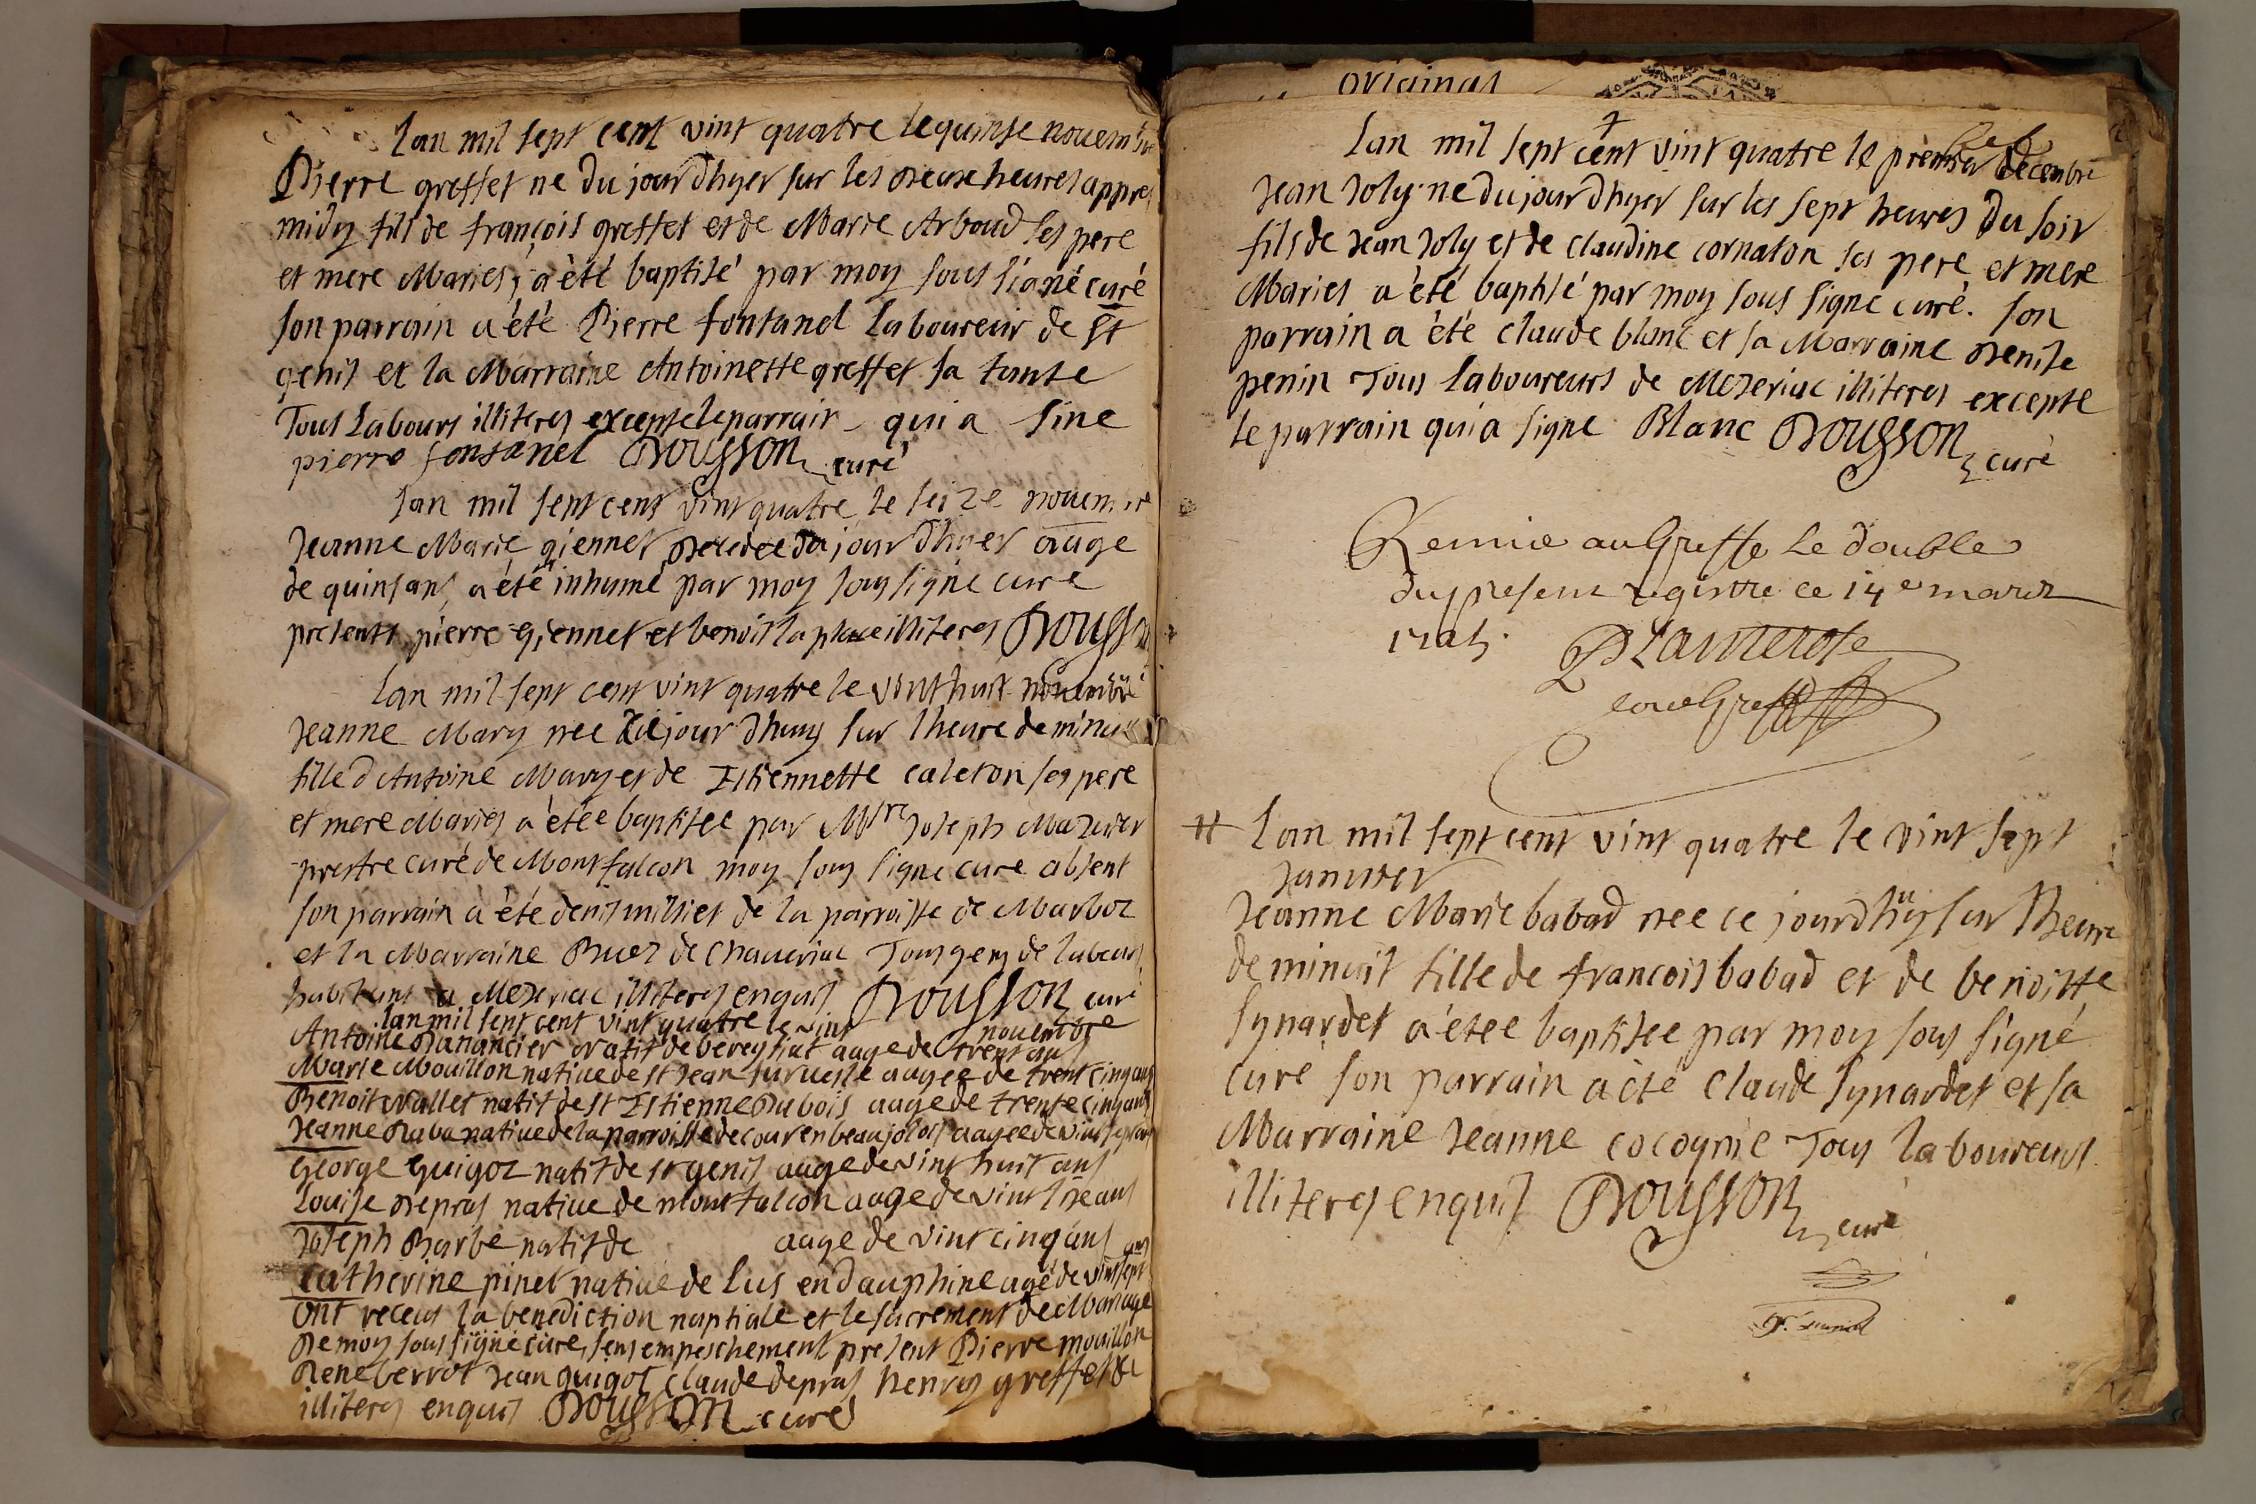 Lan mil sept cent vint quatre le quinse nouembre
Pierre greffet ne du jour dhyer sur les deux heures appres
midy fils de françois greffet et de Marie Arboud ses pere
et mere Maries, a èté baptisé par moy sous signé curé
son parrain a été Pierre fontanel laboureur de St
genis et la Marraine Antoinette greffet sa tante
Tous Labours illiteres excepte le parrain qui a sine
pierre fontanel Dousson curé
Lan mil sept cent vint quatre le seize nouembre
Jeanne Marie giennet decedee du jour dhyer auge
de quins ans a été inhumé par moy sous signe curé
present pierre giennet et benoit la place illiteres Dousson
Lan mil sept cent vint quatre le vint huit nouembre
Jeanne Mary nee ce jour dhuy sur lheure de minuit
fille d Antoine Mary et de Estiennette caleron ses pere
et mere Maries a étée baptisee par Mre Joseph Mazuier
prestre curé de Montfalcon moy sous signe curé absent
son parrain a èté denis milliet de la parroisse de Marboz
et la Marraine Buez de Chaueriac Tous gens de labeur
habitans a Mezeriac illiteres enquis Dousson curé
lan mil sept cent vint quatre le vint nouembre
Antoine natif de bereysiat auge de trent ans
Marie Mouillon natiue de st Jean sur uesle augee de trent cinq ans
Benoit Vallet natif de st Estienne Dubois auge de trente cinq ans
Jeanne Raba natiue de la parroisse de cour en beaujolois augee de vint
George Guigoz natif de st genis auge de vint huit ans
Louise Depras natiue de montfalcon auge de vint ans
Joseph Barbe natif de auge de vint cinq ans
Catherine pinet natiue de Lus en dauphine agé de vint sept ans
Ont receus la benediction naptiale et le sacrement de Mariage
De moy sous signe cure, sens empeschement present Pierre mouillon
Rene berrot Jean guigot claude depras henry greffet
illiteres enquis Dousson curé
original
Lan mil sept cent vint quatre le premier decembre
Jean Joly ne du jour dhyer sur les sept heures du soir
fils de Jean Joly et de claudine cornaton ses pere et mere
Maries a été baptisé par moy sous signe curé. son
parrain a été claude blanc et sa Marraine denise
penin Tous laboureurs de Mezeriac illiteres excepte
le parrain qui a signe Blanc Dousson curé
Remie au Greffe le double
du present registre ce 14e mars
1725.
++ Lan mil sept cent vint quatre le vint sept
Januier
Jeanne Marie babad nee ce jourdhuy sur lheure
de minuit fille de francois babad et de benoitte
synardet a étee baptisee par moy sous signé
curé son parrain a èté claude synardet et sa
Marraine Jeanne cocogne Tous laboureurs
illiteres enquis Dousson curé